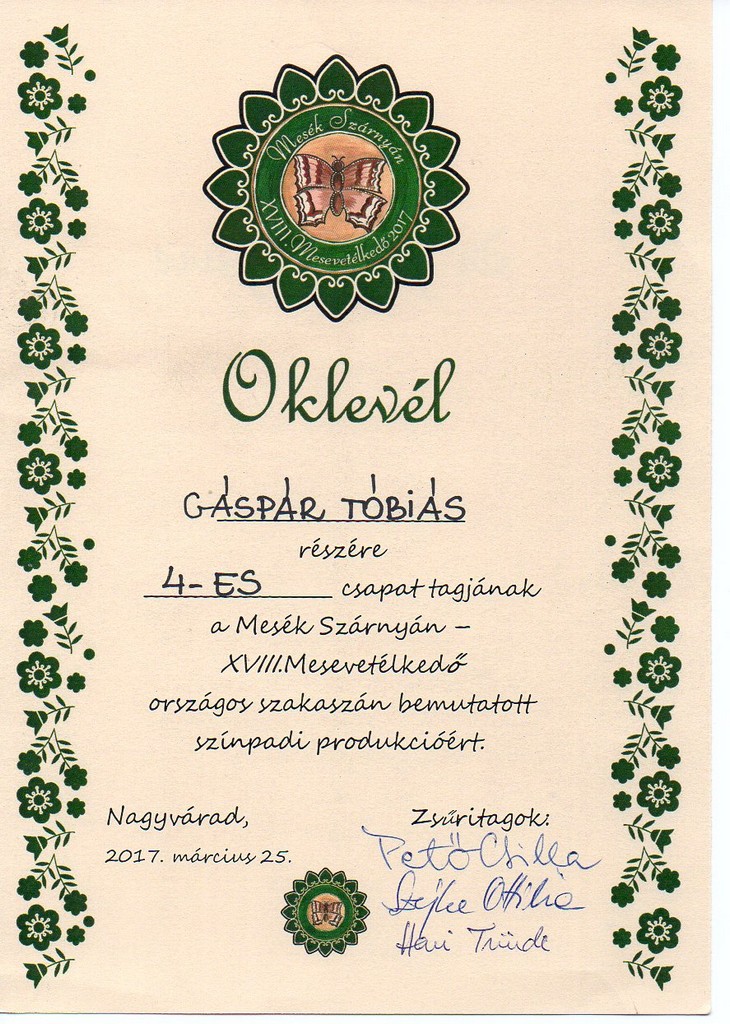 Mesék Szárnyán
XVIII. Mesevetélkedő 2017
Oklevél
GÁSPÁR TÓBIÁS
részére
4-ES csapat tagjának
a Mesék Szárnyán –
XVIII.Mesevetélkedő
országos szakaszán bemutatott
színpadi produkcióért.
Nagyvárad,
2017. március 25.
Zsűritagok:
Pető Csilla
Ottilia